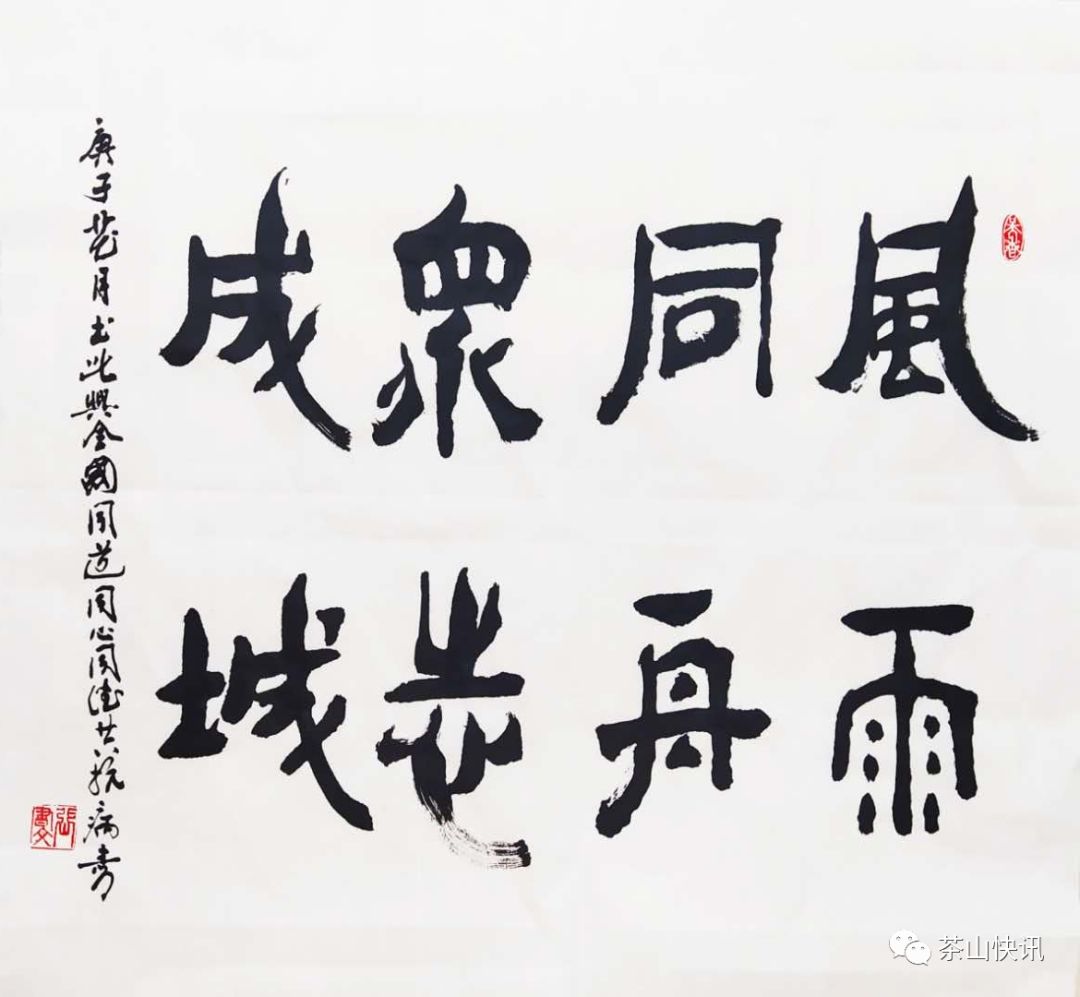 風雨
同舟
眾志
成城
庚子花月书此與全國同道同心同德共抗病毒
茶山快讯